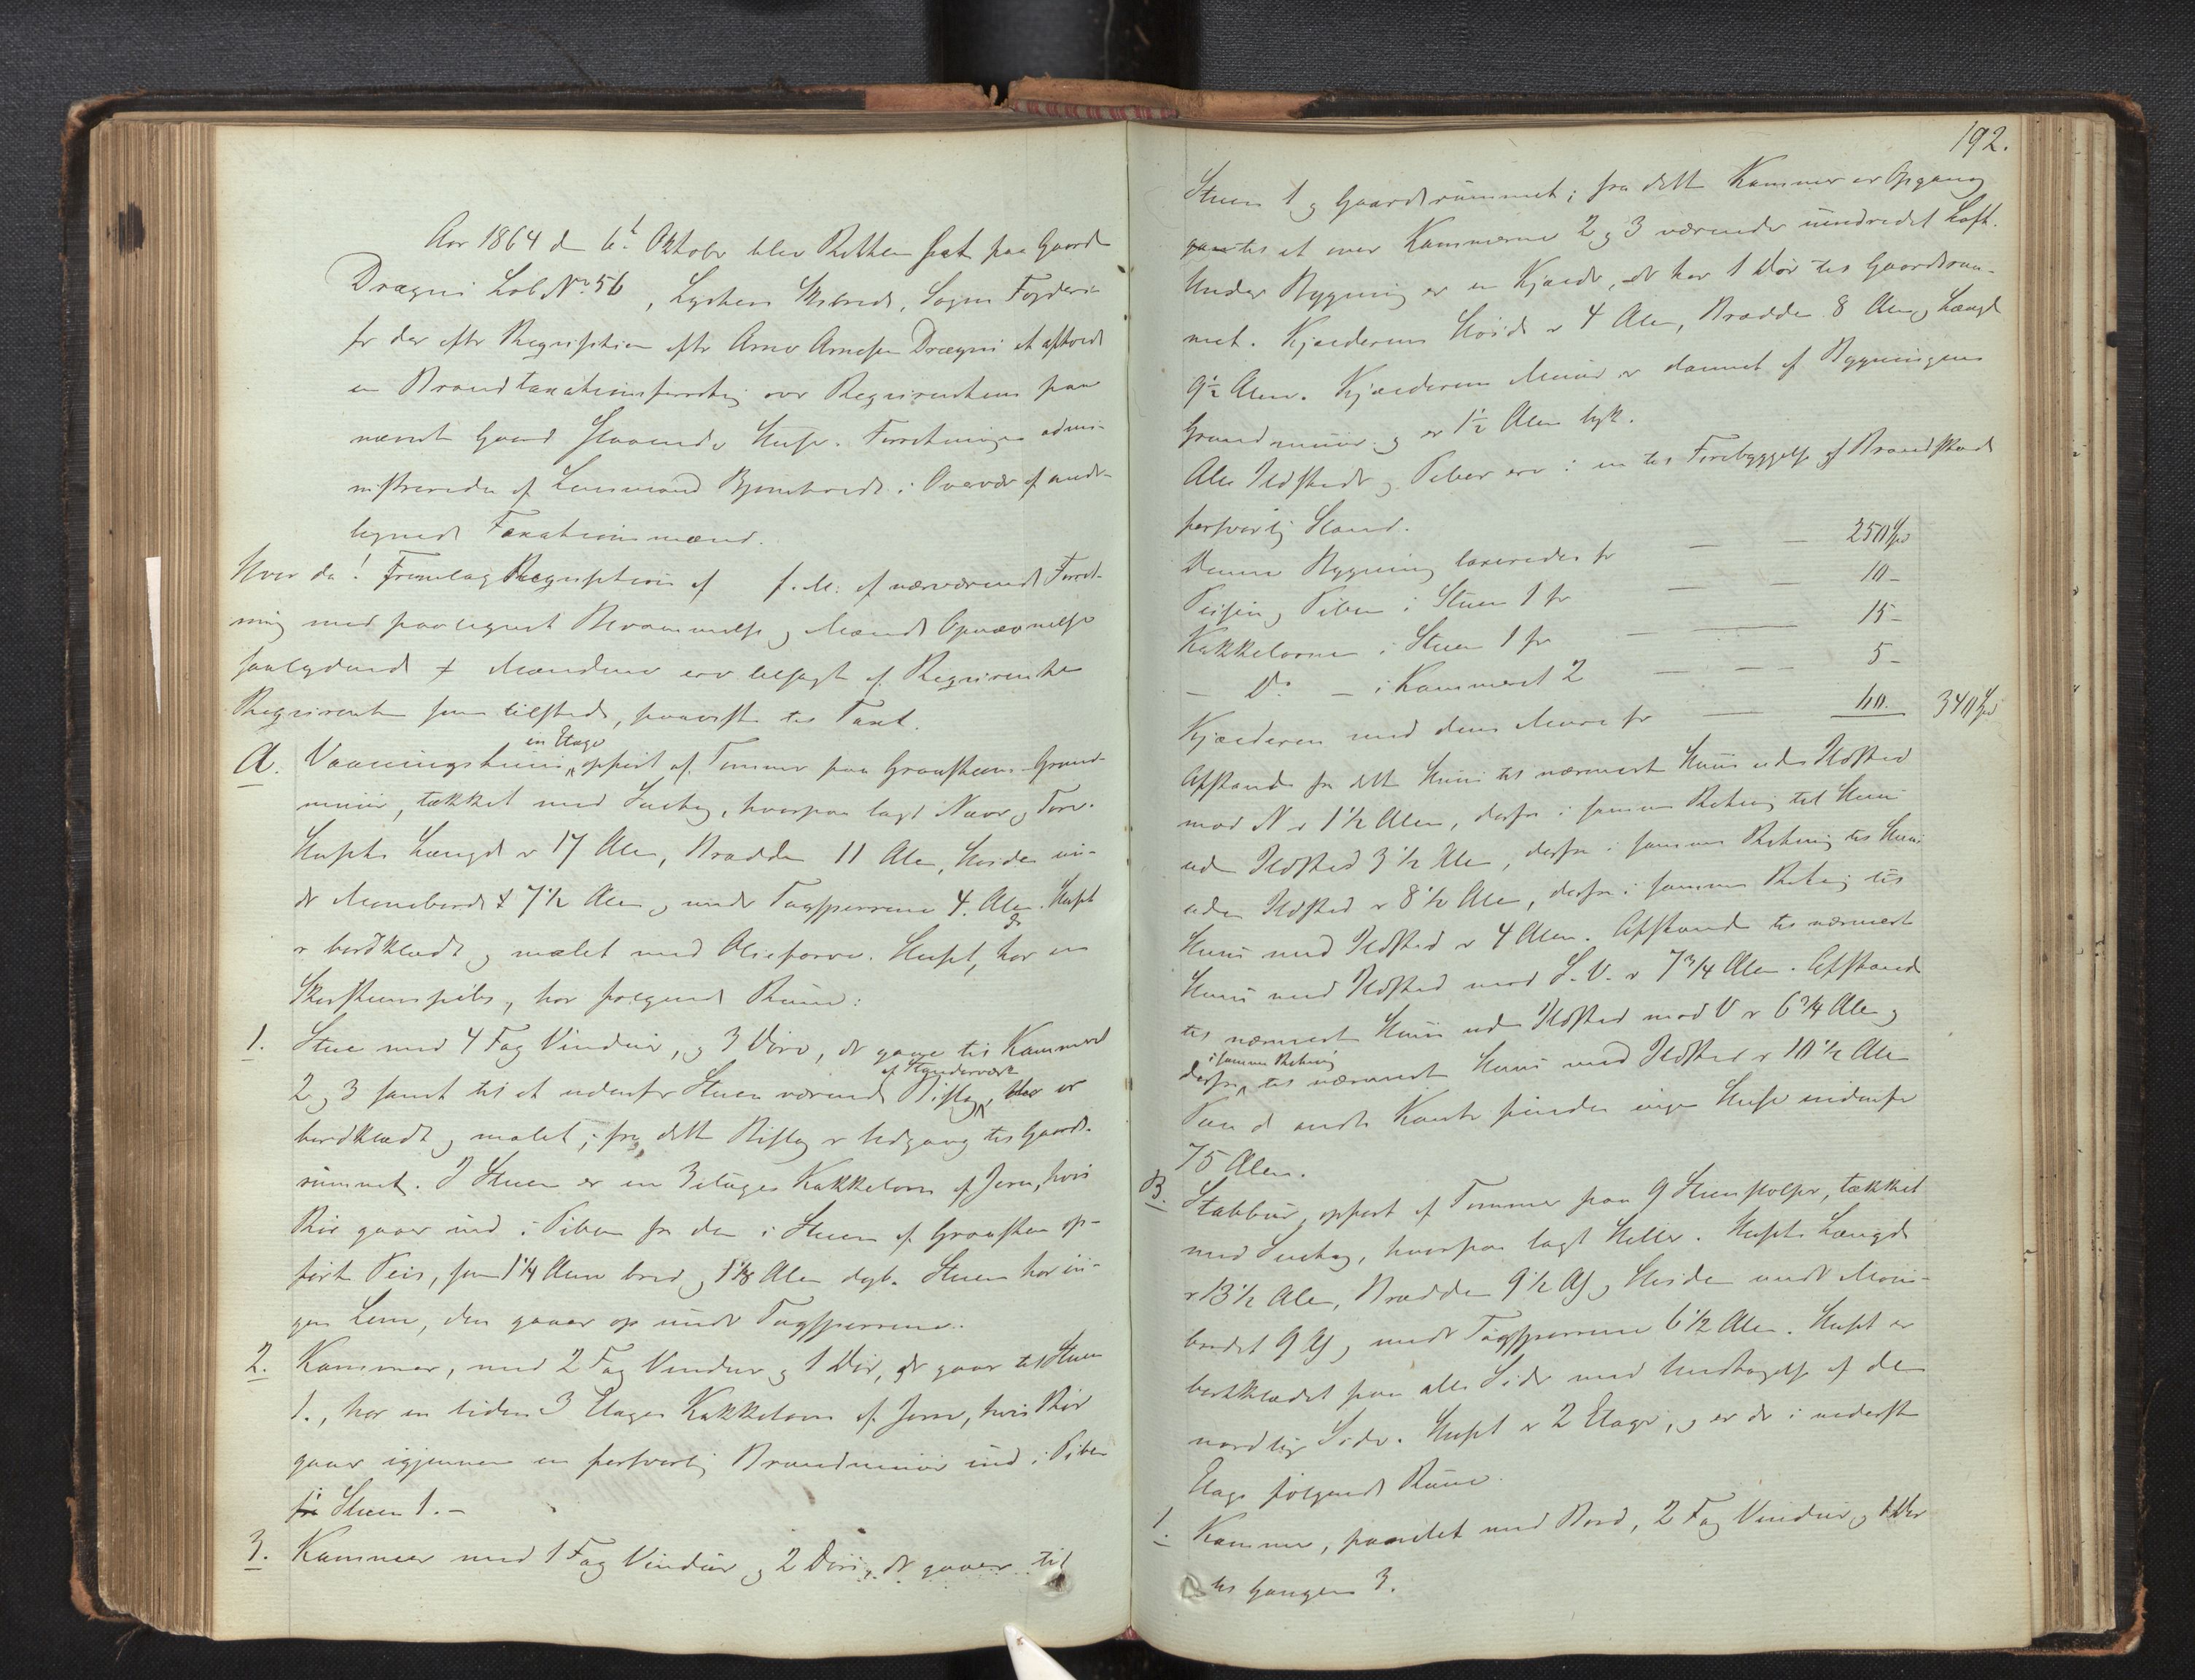 Aar 1864 den 6t Oktober blev Retten sat paa Gaarden
Drægni Løb No 56, Lysters Skibrede, Sogns Fogderi
for der efter Requisition efter Arne Arnesen Drægni at afholde
en Brandtaxationsforretning over Requirentens paa
nævnte Gaard staaende Huse. Forretningen admi-
nistreredes af Lensmand i Overvær af under-
tegnede Taxationsmænd.
Hvor da! Fremlag Requisition af f. M. af nærværende Forret-
ning med paategnet Berammelse og Mænds Opnævnelse
saalydende ≠ Mændene ere tilsagt af Requirenten
Requirenten som tilstede, paaviste til Taxt.
A. Vaaningshuus en Etage opført af Tømmer paa Graasteens Grund-
muur, tækket med Sutag, hvorpaa lagt Næver og Torv.
Husets Længde er 17 Alen, Bredden 11 Alen, Høiden un-
der Mønebordet 7 1/2 Alen og under Tagsperrene 4 Alen. Huset
er bordklædt og malet med Oliefarve. Huset, der har en
Skorsteenspibe, har følgende Rum:
1. Stue med 4 Fag Vinduer, og 3 Døre, der gaae til Kammerne
2 og 3 samt til et udenfor Stuen værende Bislag af Stenderværk, der er
bordklædt og malet; fra dette Bislag er Udgang til Gaards-
rummet. I Stuen er en 3 etages Kakkelovn af Jern, hvis
Rør gaaer ind i Piben fra den i Stuen af Graasteen op-
førte Peis, som 1 1/4 Alen bred og 1 1/8 Alen dyb. Stuen har in-
gen Lem, den gaaer op under Tagsperrene.
2. Kammer, med 2 Fag Vinduer og 1 Dør, der gaaer til Stuen
1., har en liden 3 Etages Kakkelovn af Jern, hvis Rør
gaaer igjennem en forsvarlig Brandmuur ind i Piben
i Stuen 1. -
3. Kammer med 1 Fag Vinduer og 2 Døre, der gaaer til
192.
Stuen 1 og Gaardsrummet; fra dette Kammer er Opgang
til et over Kammerne 2 og 3 værende uindredet Loft.
Under Bygning er en Kjælder, der har 1 Dør til Gaardsrum-
met. Kjælderens Høide er 4 Alen, Bredde 8 Alen og Længde
9 1/2 Alen. Kjælderens Muur er dannet af Bygningens
Grundmuur og er 1 1/2 Alen tyk.
Alle Ildsteder og Piber ere i en til Forebyggelse af Brandskade
forsvarlig Stand.
Denne Bygning taxeredes for — — 250 Spd
Peisen og Piben i Stuen 1 for — — 10 -
Kakkelovnen i Stuen 1 for — — 15 -
— Do — i Kammeret 2 — — 5 -
Kjælderen med dens Mure for — 60. 340 Spd
Afstanden fra dette Huus til nærmeste Huus uden Ildsted
mod N er 1 1/2 Alen, derfra i samme Retning til Huus
uden Ildsted 3 1/2 Alen, derfra i samme Retning til Huus
uden Ildsted er 8 1/2 Alen, derfra i samme Retning til
Huus med Ildsted er 4 Alen. Afstanden til nærmeste
Huus med Ildsted mod S.V. er 7 3/4 Alen. Afstanden
til nærmeste Huus uden Ildsted mod V er 6 3/4 Alen og
derfra i samme Retning til nærmeste Huus med Ildsted er 10 1/2 Alen
Paa de andre Kanter findes ingen Huse indenfor
75 Alen.
B. Stabbur, opført af Tømmer paa 9 Steenstolper, tækket
med Sutag, hvorpaa lagt Heller. Husets Længde
er 13 1/2 Alen, Bredden 9 1/2 Al og Høiden under Møne-
bordet 9 Al og under Tagsperrene 6 1/2 Alen. Huset er
bordklædt paa alle Sider med Undtagelse af den
nordlige Side. Huset er 2 Etager, og er der i nederste
Etage følgende Rum.
1. Kammer, panelet med Bord, 2 Fag Vinduer og 1 Dør
til Gangen 3.